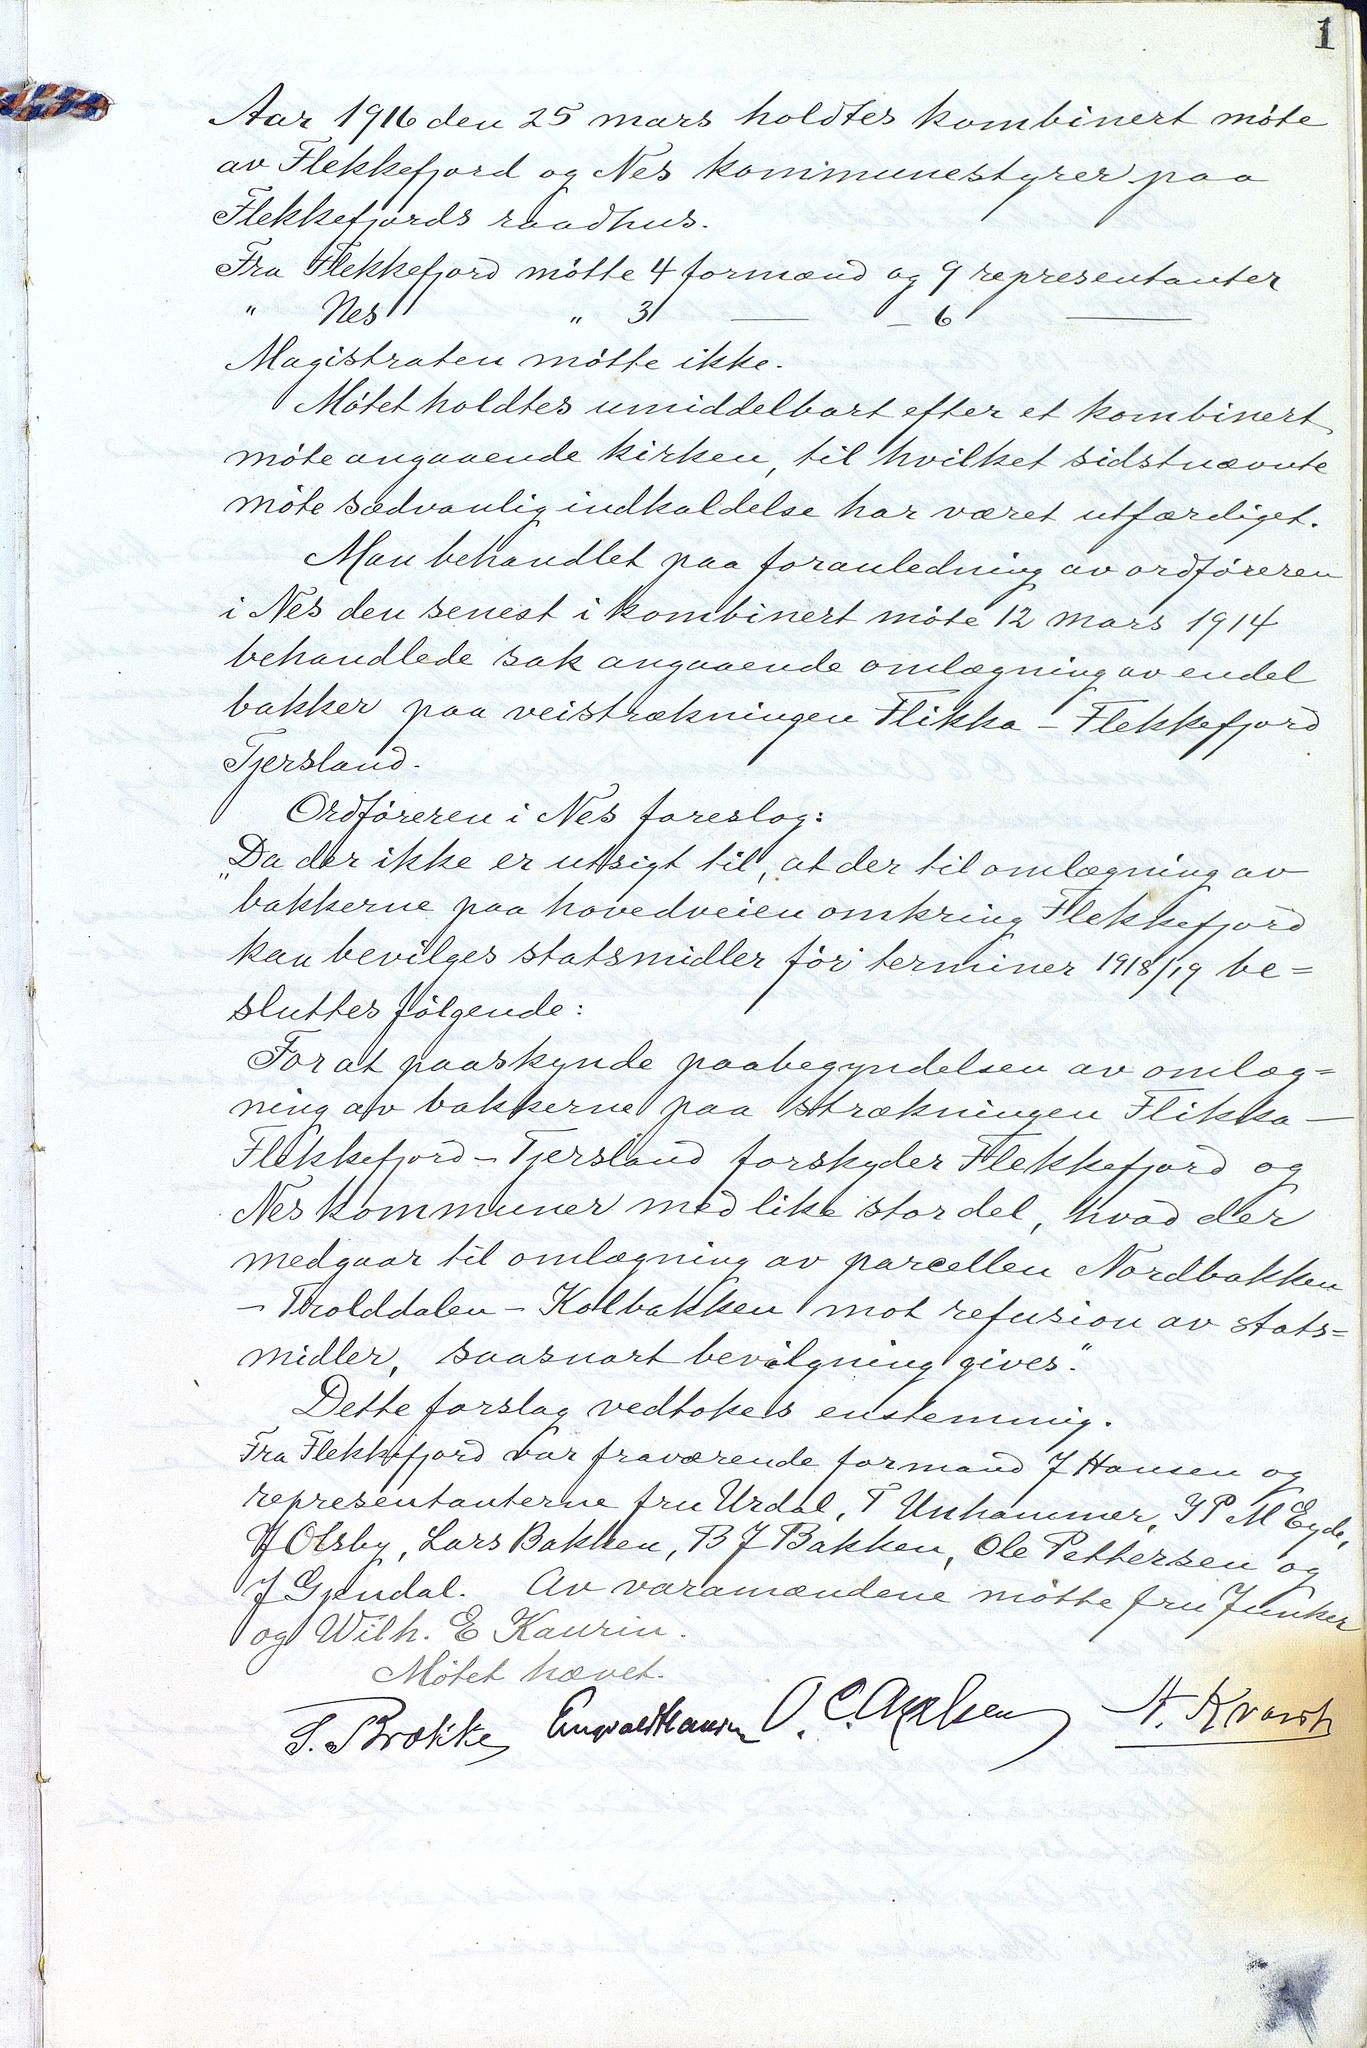 1
Aar 1916 den 25 mars holdtes kombinert møte
av Flekkefjord og Nes kommunestyrer paa
Flekkefjords raadhus.
Fra Flekkefjord møtte 4 formænd og 9 representanter
" Nes " 3 — – 6 —
Magistraten møtte ikke.
Møtet holdtes umiddelbart efter et kombinert
møte angaaende kirken, til hvilket sidstnævnte
møte sædvanlig indkaldelse har været utfærdiget.
Man behandlet paa foranledning av ordføreren
i Nes den senest i kombinert møte 12 mars 1914
behandlede sak angaaende omlægning av endel
bakker paa veistrækningen Flikka – Flekkefjord
Tjersland.
Ordføreren i Nes foreslog:
„Da der ikke er utsigt til, at der til omlægning av
bakkerne paa hovedveien omkring Flekkefjord
kan bevilges statsmidler før terminer 1918/19 be=
sluttes følgende:
For at paaskynde paabegyndelsen av omlæg=
ning av bakkerne paa strækningen Flikka –
Flekkefjord – Tjersland forskyder Flekkefjord og
Nes kommuner med like stor del, hvad der
medgaar til omlægning av parcellen Nordbakken
– Trolddalen – Kolbakken mot refusion av stats=
midler, saasnart bevilgning gives."
Dette forslag vedtokes enstemmig.
Fra Flekkefjord var fraværende formand J Hansen og
representanterne fru Urdal, T Unhammer, J P M Eyde,
J Olsby, Lars Bakken, B J Bakken, Ole Pettersen og
J Gjendal. Av varamændene møtte fru Junker
og Wilh. E Kaurin.
Møtet hævet.
T. Brække Engvald Hansen O. C. Axelsen A. Kvavik